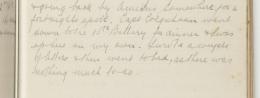 & going back by Amiens Somewhere for a
fortnight's spell. Capt Colquhoun went
down to the 15th Battery to dinner & I was
up there on my own. I wrote a couple
of letters & then went to bed, as there was
nothing much to do.